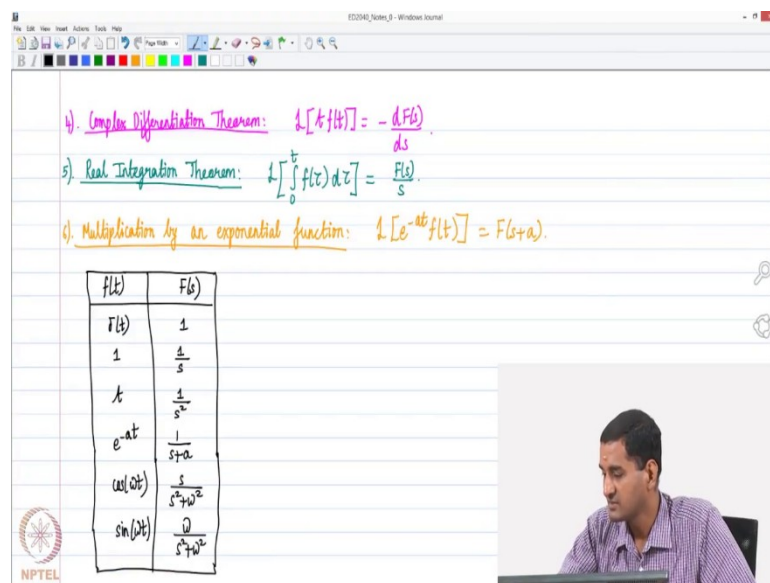 ED2040_Notes_0 - Windows Journal
File Edit View Insert Actions Tools Help
Page Width
B I
4). Complex Differentiation Theorem: L[t f(t)] = - dF(s)/ds.
5). Real Integration Theorem: L[∫₀ᵗ f(τ) dτ] = F(s)/s.
6). Multiplication by an exponential function: L[e^{-at} f(t)] = F(s+a).
f(t) F(s)
δ(t) 1
1 1/s
t 1/s²
e^{-at} 1/(s+a)
cos(ωt) s/(s²+ω²)
sin(ωt) ω/(s²+ω²)
NPTEL